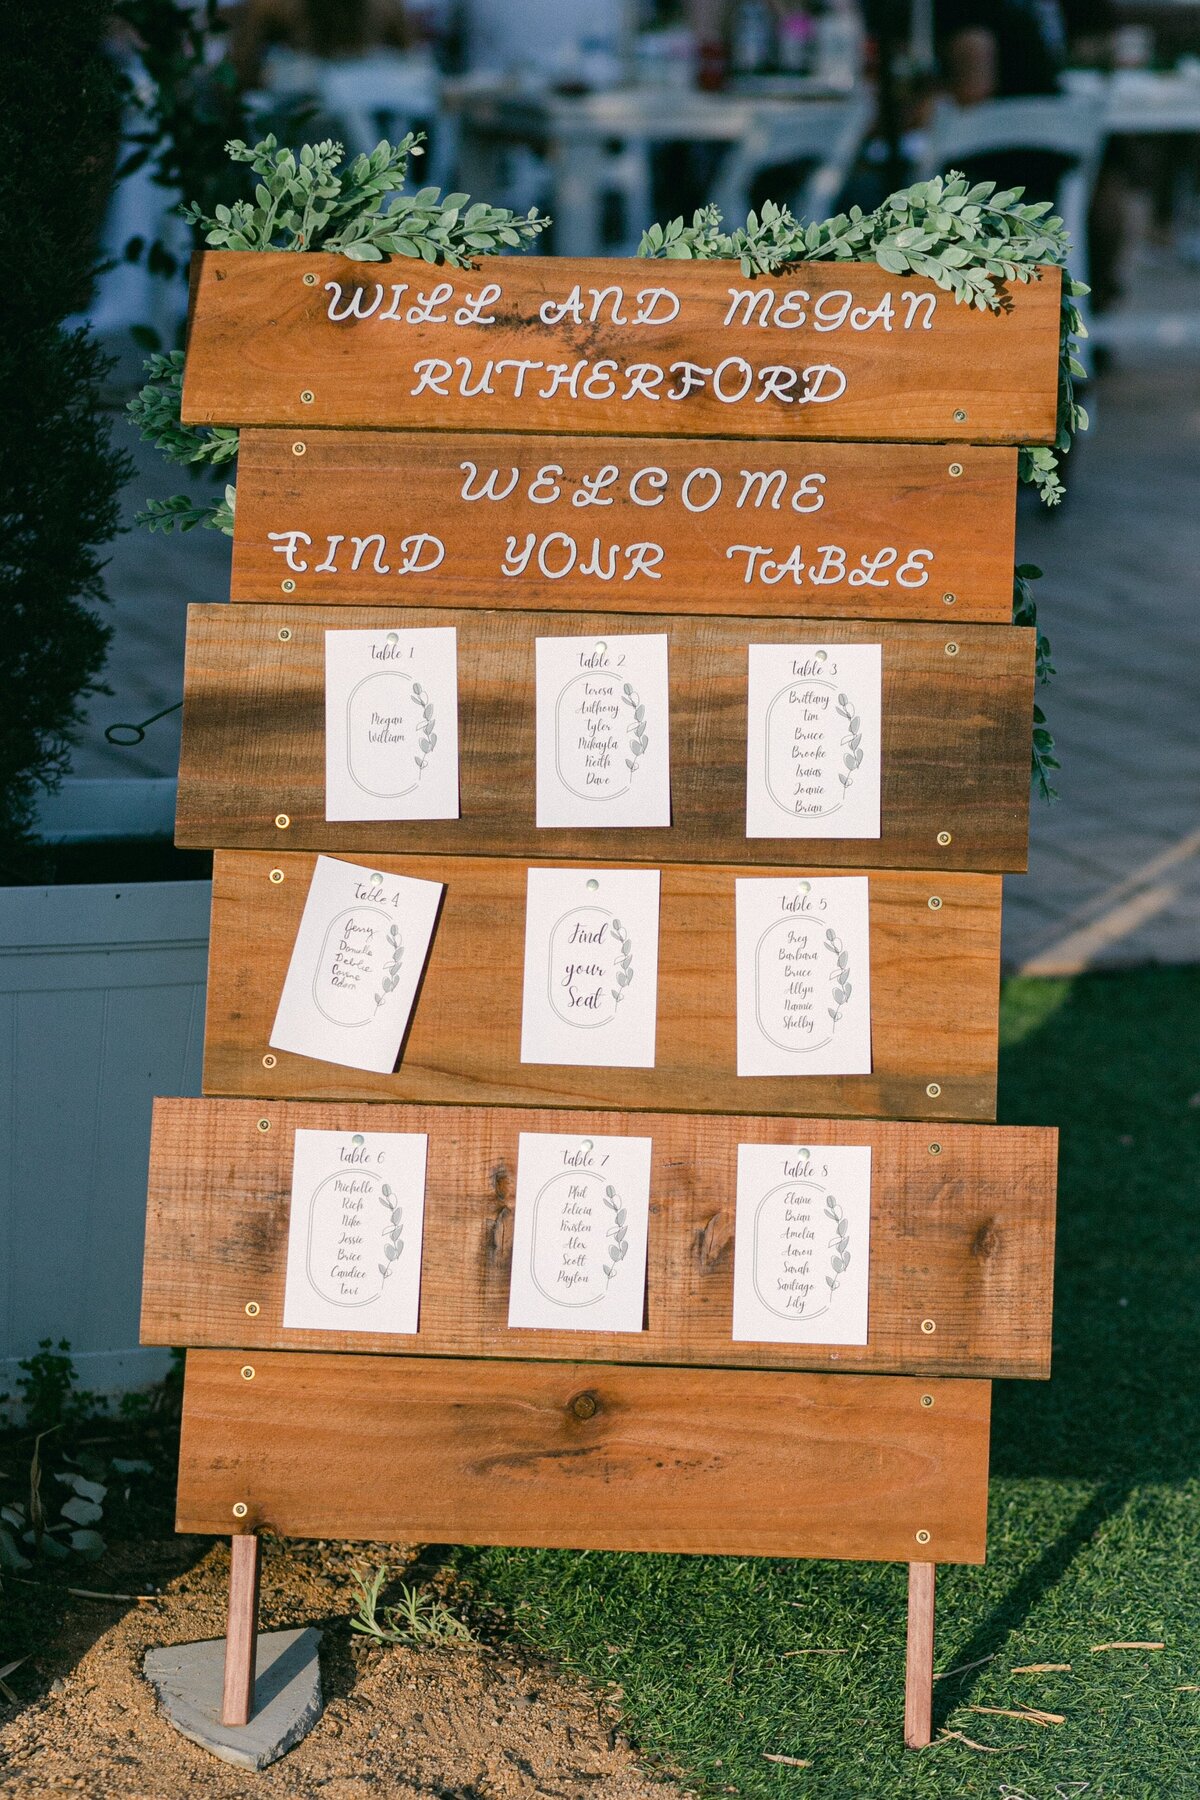 WILL AND MEGAN
RUTHERFORD
WELCOME
FIND YOUR TABLE
table 1
Megan
William
table 2
Teresa
Anthony
Tyler
Mikayla
Keith
Dave
table 3
Brittany
Tim
Bruce
Brooke
Isaias
Joanie
Brian
table 4
Jerry
Danielle
Debbie
Adam
Find
your
Seat
table 5
Greg
Barbara
Bruce
Allyn
Nannie
Shelby
table 6
Michelle
Rich
Niko
Jessie
Brice
Candice
Tovi
table 7
Phil
Felicia
Kristen
Alex
Scott
Payton
table 8
Elaine
Brian
Amelia
Aaron
Sarah
Santiago
Lily